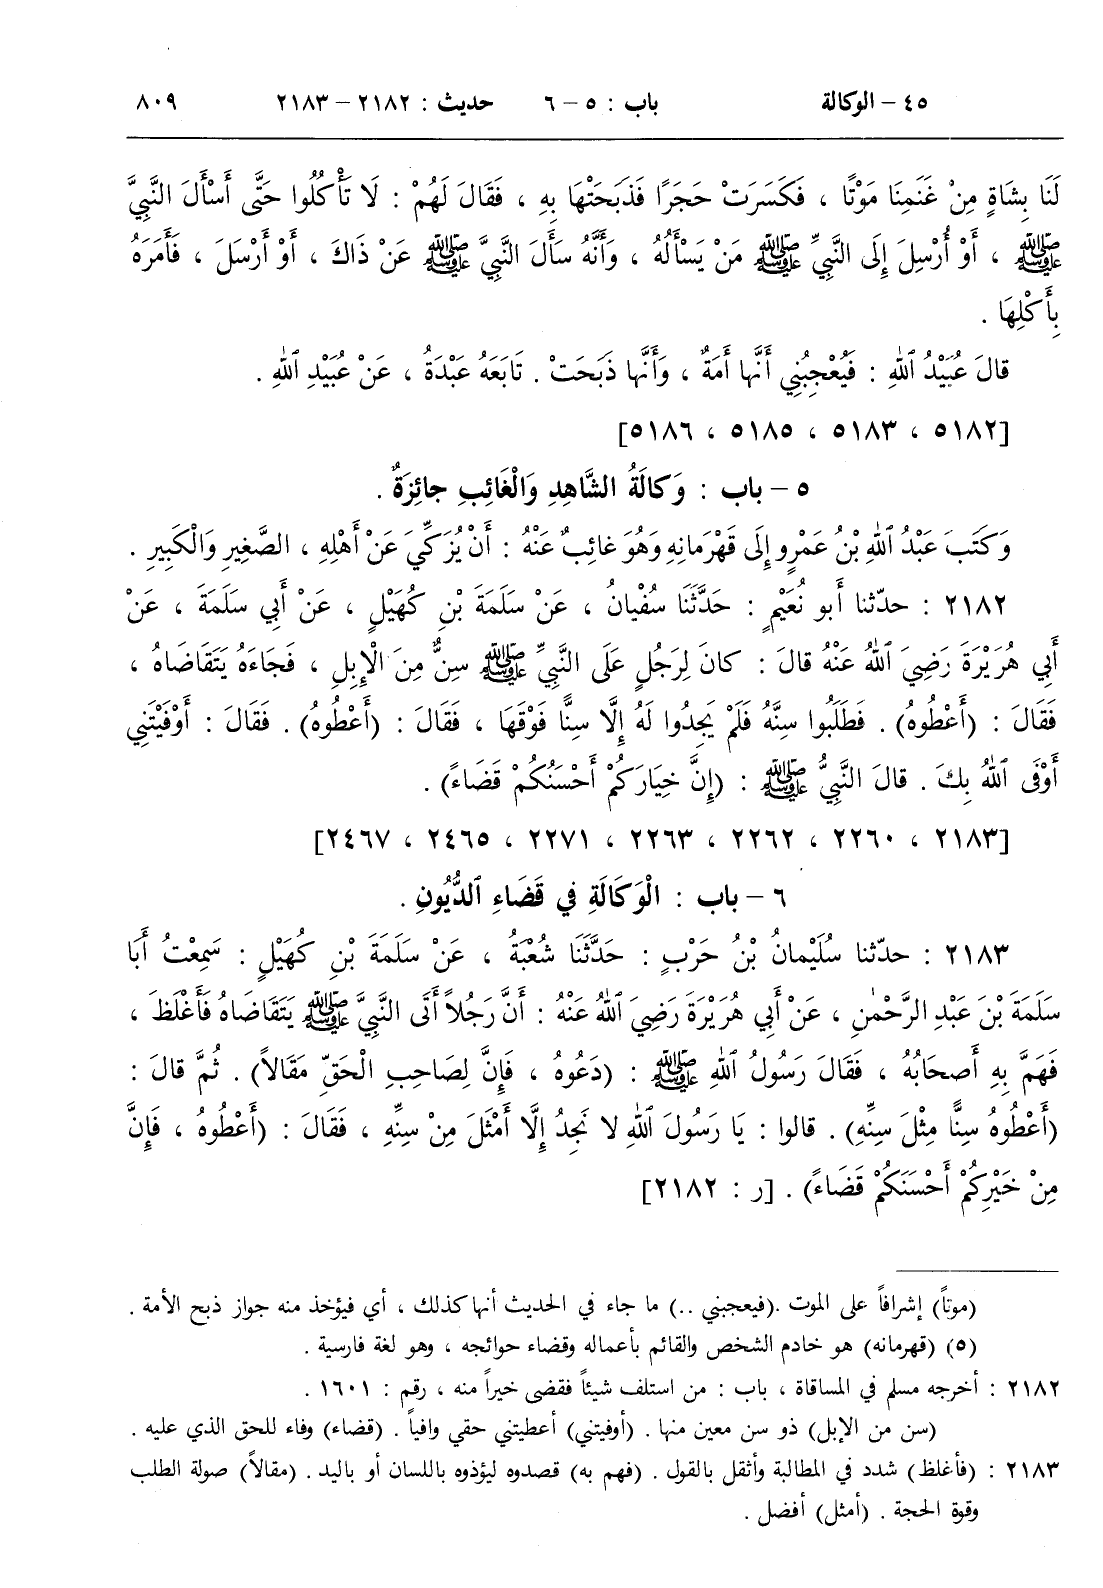 ٤٥ – الوكالة باب : ٥ – ٦ حديث : ٢١٨٢ – ٢١٨٣ ٨٠٩
لَنَا بِشَاةٍ مِنْ غَنَمِنَا مَوْتًا ، فَكَسَرَتْ حَجَرًا فَذَبَحَتْهَا بِهِ ، فَقَالَ لَهُمْ : لَا تَأْكُلُوا حَتَّى أَسْأَلَ النَّبِيَّ
ﷺ ، أَوْ أُرْسِلَ إِلَى النَّبِيِّ ﷺ مَنْ يَسْأَلُهُ ، وَأَنَّهُ سَأَلَ النَّبِيَّ ﷺ عَنْ ذَاكَ ، أَوْ أَرْسَلَ ، فَأَمَرَهُ
بِأَكْلِهَا .
قالَ عُبَيْدُ ٱللهِ : فَيُعْجِبُنِي أَنَّهَا أَمَةٌ ، وَأَنَّهَا ذَبَحَتْ . تَابَعَهُ عَبْدَةُ ، عَنْ عُبَيْدِ ٱللهِ .
[٥١٨٢ ، ٥١٨٣ ، ٥١٨٥ ، ٥١٨٦]
٥ – باب : وَكالَةُ الشَّاهِدِ وَالْغَائِبِ جائِزَةٌ .
وَكَتَبَ عَبْدُ ٱللهِ بْنُ عَمْرٍو إِلَى قَهْرَمانِهِ وَهُوَ غائِبٌ عَنْهُ : أَنْ يُزَكِّيَ عَنْ أَهْلِهِ ، الصَّغِيرِ وَالْكَبِيرِ .
٢١٨٢ : حدّثنا أَبو نُعَيْمٍ : حَدَّثَنَا سُفْيانُ ، عَنْ سَلَمَةَ بْنِ كُهَيْلٍ ، عَنْ أَبِي سَلَمَةَ ، عَنْ
أَبِي هُرَيْرَةَ رَضِيَ ٱللهُ عَنْهُ قالَ : كانَ لِرَجُلٍ عَلَى النَّبِيِّ ﷺ سِنٌّ مِنَ الْإِبِلِ ، فَجَاءَهُ يَتَقَاضَاهُ ،
فَقَالَ : (أَعْطُوهُ) . فَطَلَبُوا سِنَّهُ فَلَمْ يَجِدُوا لَهُ إِلَّا سِنًّا فَوْقَهَا ، فَقَالَ : (أَعْطُوهُ) . فَقَالَ : أَوْفَيْتَنِي
أَوْفَى ٱللهُ بِكَ . قالَ النَّبِيُّ ﷺ : (إِنَّ خِيَارَكُمْ أَحْسَنُكُمْ قَضَاءً) .
[٢١٨٣ ، ٢٢٦٠ ، ٢٢٦٢ ، ٢٢٦٣ ، ٢٢٧١ ، ٢٤٦٥ ، ٢٤٦٧]
٦ – باب : الْوَكَالَةِ فِي قَضَاءِ ٱلدُّيُونِ .
٢١٨٣ : حدّثنا سُلَيْمانُ بْنُ حَرْبٍ : حَدَّثَنَا شُعْبَةُ ، عَنْ سَلَمَةَ بْنِ كُهَيْلٍ : سَمِعْتُ أَبَا
سَلَمَةَ بْنَ عَبْدِ الرَّحْمٰنِ ، عَنْ أَبِي هُرَيْرَةَ رَضِيَ ٱللهُ عَنْهُ : أَنَّ رَجُلاً أَتَى النَّبِيَّ ﷺ يَتَقَاضَاهُ فَأَغْلَظَ ،
فَهَمَّ بِهِ أَصْحَابُهُ ، فَقَالَ رَسُولُ ٱللهِ ﷺ : (دَعُوهُ ، فَإِنَّ لِصَاحِبِ الْحَقِّ مَقَالاً) . ثُمَّ قالَ :
(أَعْطُوهُ سِنًّا مِثْلَ سِنِّهِ) . قالوا : يَا رَسُولَ ٱللهِ لا نَجِدُ إِلَّا أَمْثَلَ مِنْ سِنِّهِ ، فَقَالَ : (أَعْطُوهُ ، فَإِنَّ
مِنْ خَيْرِكُمْ أَحْسَنَكُمْ قَضَاءً) . [ر : ٢١٨٢]
(موتاً) إشرافاً على الموت .(فيعجبني ..) ما جاء في الحديث أنها كذلك ، أي فيؤخذ منه جواز ذبح الأمة .
(٥) (قهرمانه) هو خادم الشخص والقائم بأعماله وقضاء حوائجه ، وهو لغة فارسية .
٢١٨٢ : أخرجه مسلم في المساقاة ، باب : من استلف شيئاً فقضى خيراً منه ، رقم : ١٦٠١ .
(سن من الإبل) ذو سن معين منها . (أوفيتني) أعطيتني حقي وافياً . (قضاء) وفاء للحق الذي عليه .
٢١٨٣ : (فأغلظ) شدد في المطالبة وأثقل بالقول . (فهم به) قصدوه ليؤذوه باللسان أو باليد . (مقالاً) صولة الطلب
وقوة الحجة . (أمثل) أفضل .